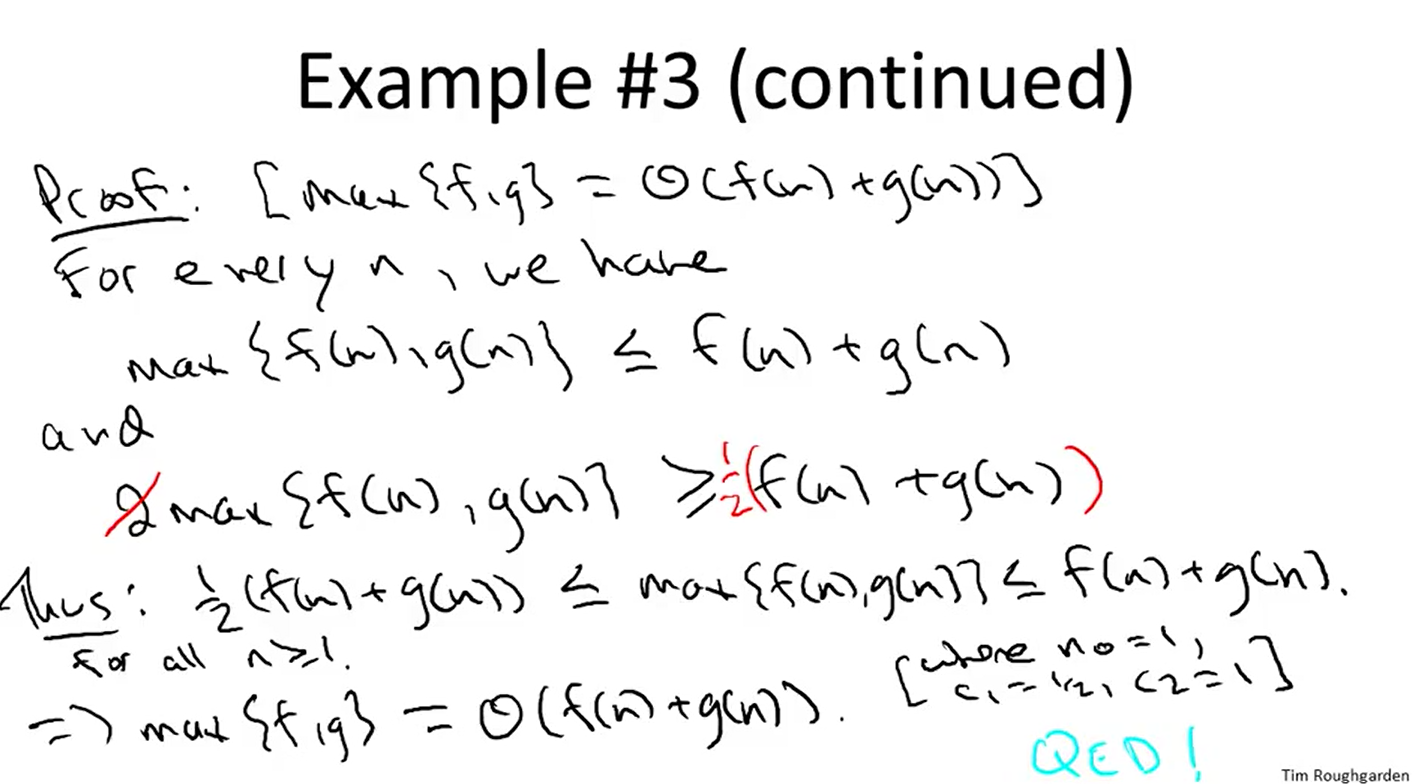 Example #3 (continued)
Proof: [max {f,g} = Θ(f(n) + g(n))]
For every n, we have
max {f(n), g(n)} ≤ f(n) + g(n)
and
2 max {f(n), g(n)} ≥ 1/2 (f(n) + g(n))
Thus: 1/2 (f(n) + g(n)) ≤ max {f(n), g(n)} ≤ f(n) + g(n).
for all n ≥ 1.
[where n₀ = 1,
c₁ = 1/2, c₂ = 1]
=> max {f,g} = Θ(f(n) + g(n)).
QED!
Tim Roughgarden